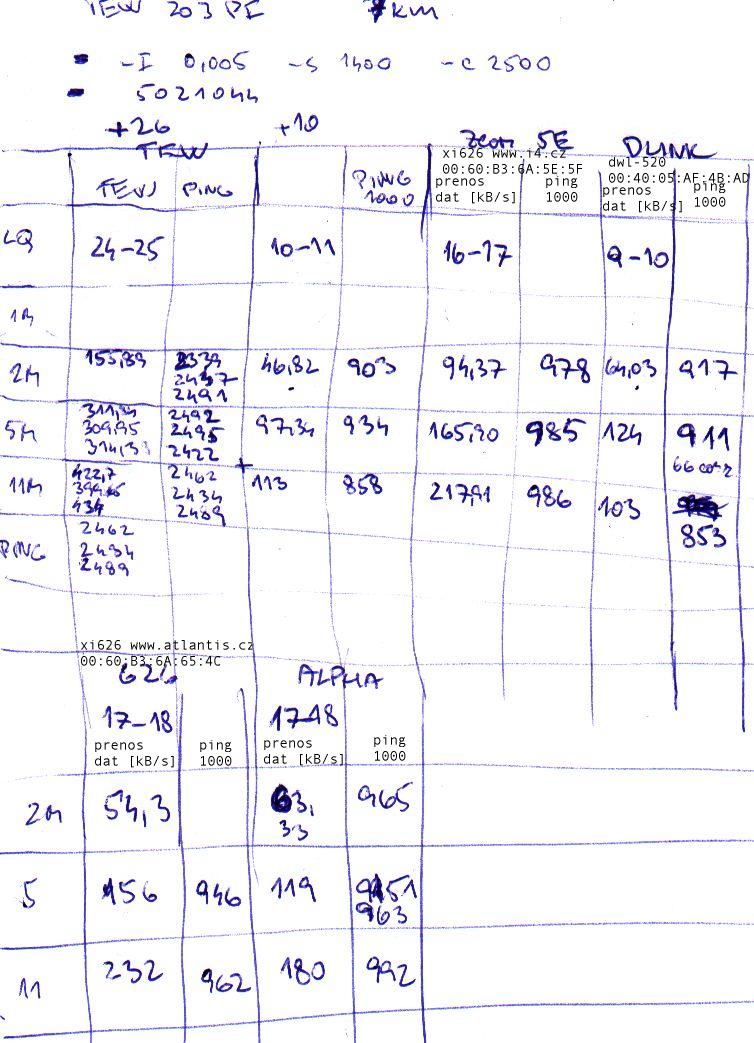 TEW 203 PI 7km
-I 0,005 -s 1400 -c 2500
5021044
+26 +10
TEW Zcom 5E DLINK
xi626 www.i4.cz dwl-520
00:60:B3:6A:5E:5F 00:40:05:AF:4B:AD
TEW PING PING 1000 prenos dat [kB/s] ping 1000 prenos dat [kB/s] ping 1000
LQ 24-25 10-11 16-17 9-10
1M
2M 155,89 2339 46,82 903 94,37 978 64,03 917
2447
2491
5M 2492 97,34 934 165,20 985 124 911
309,95 2495
314,33 2422
66
11M 422,7 2462 + 113 858 217,91 986 103
2434
434 2489
853
PING 2462
2434
2489
xi626 www.atlantis.cz
00:60:B3:6A:65:4C
626 ALPHA
17-18 17-18
prenos dat [kB/s] ping 1000 prenos dat [kB/s] ping 1000
2M 54,3 63,33 965
5 156 946 119
963
11 232 962 180 992